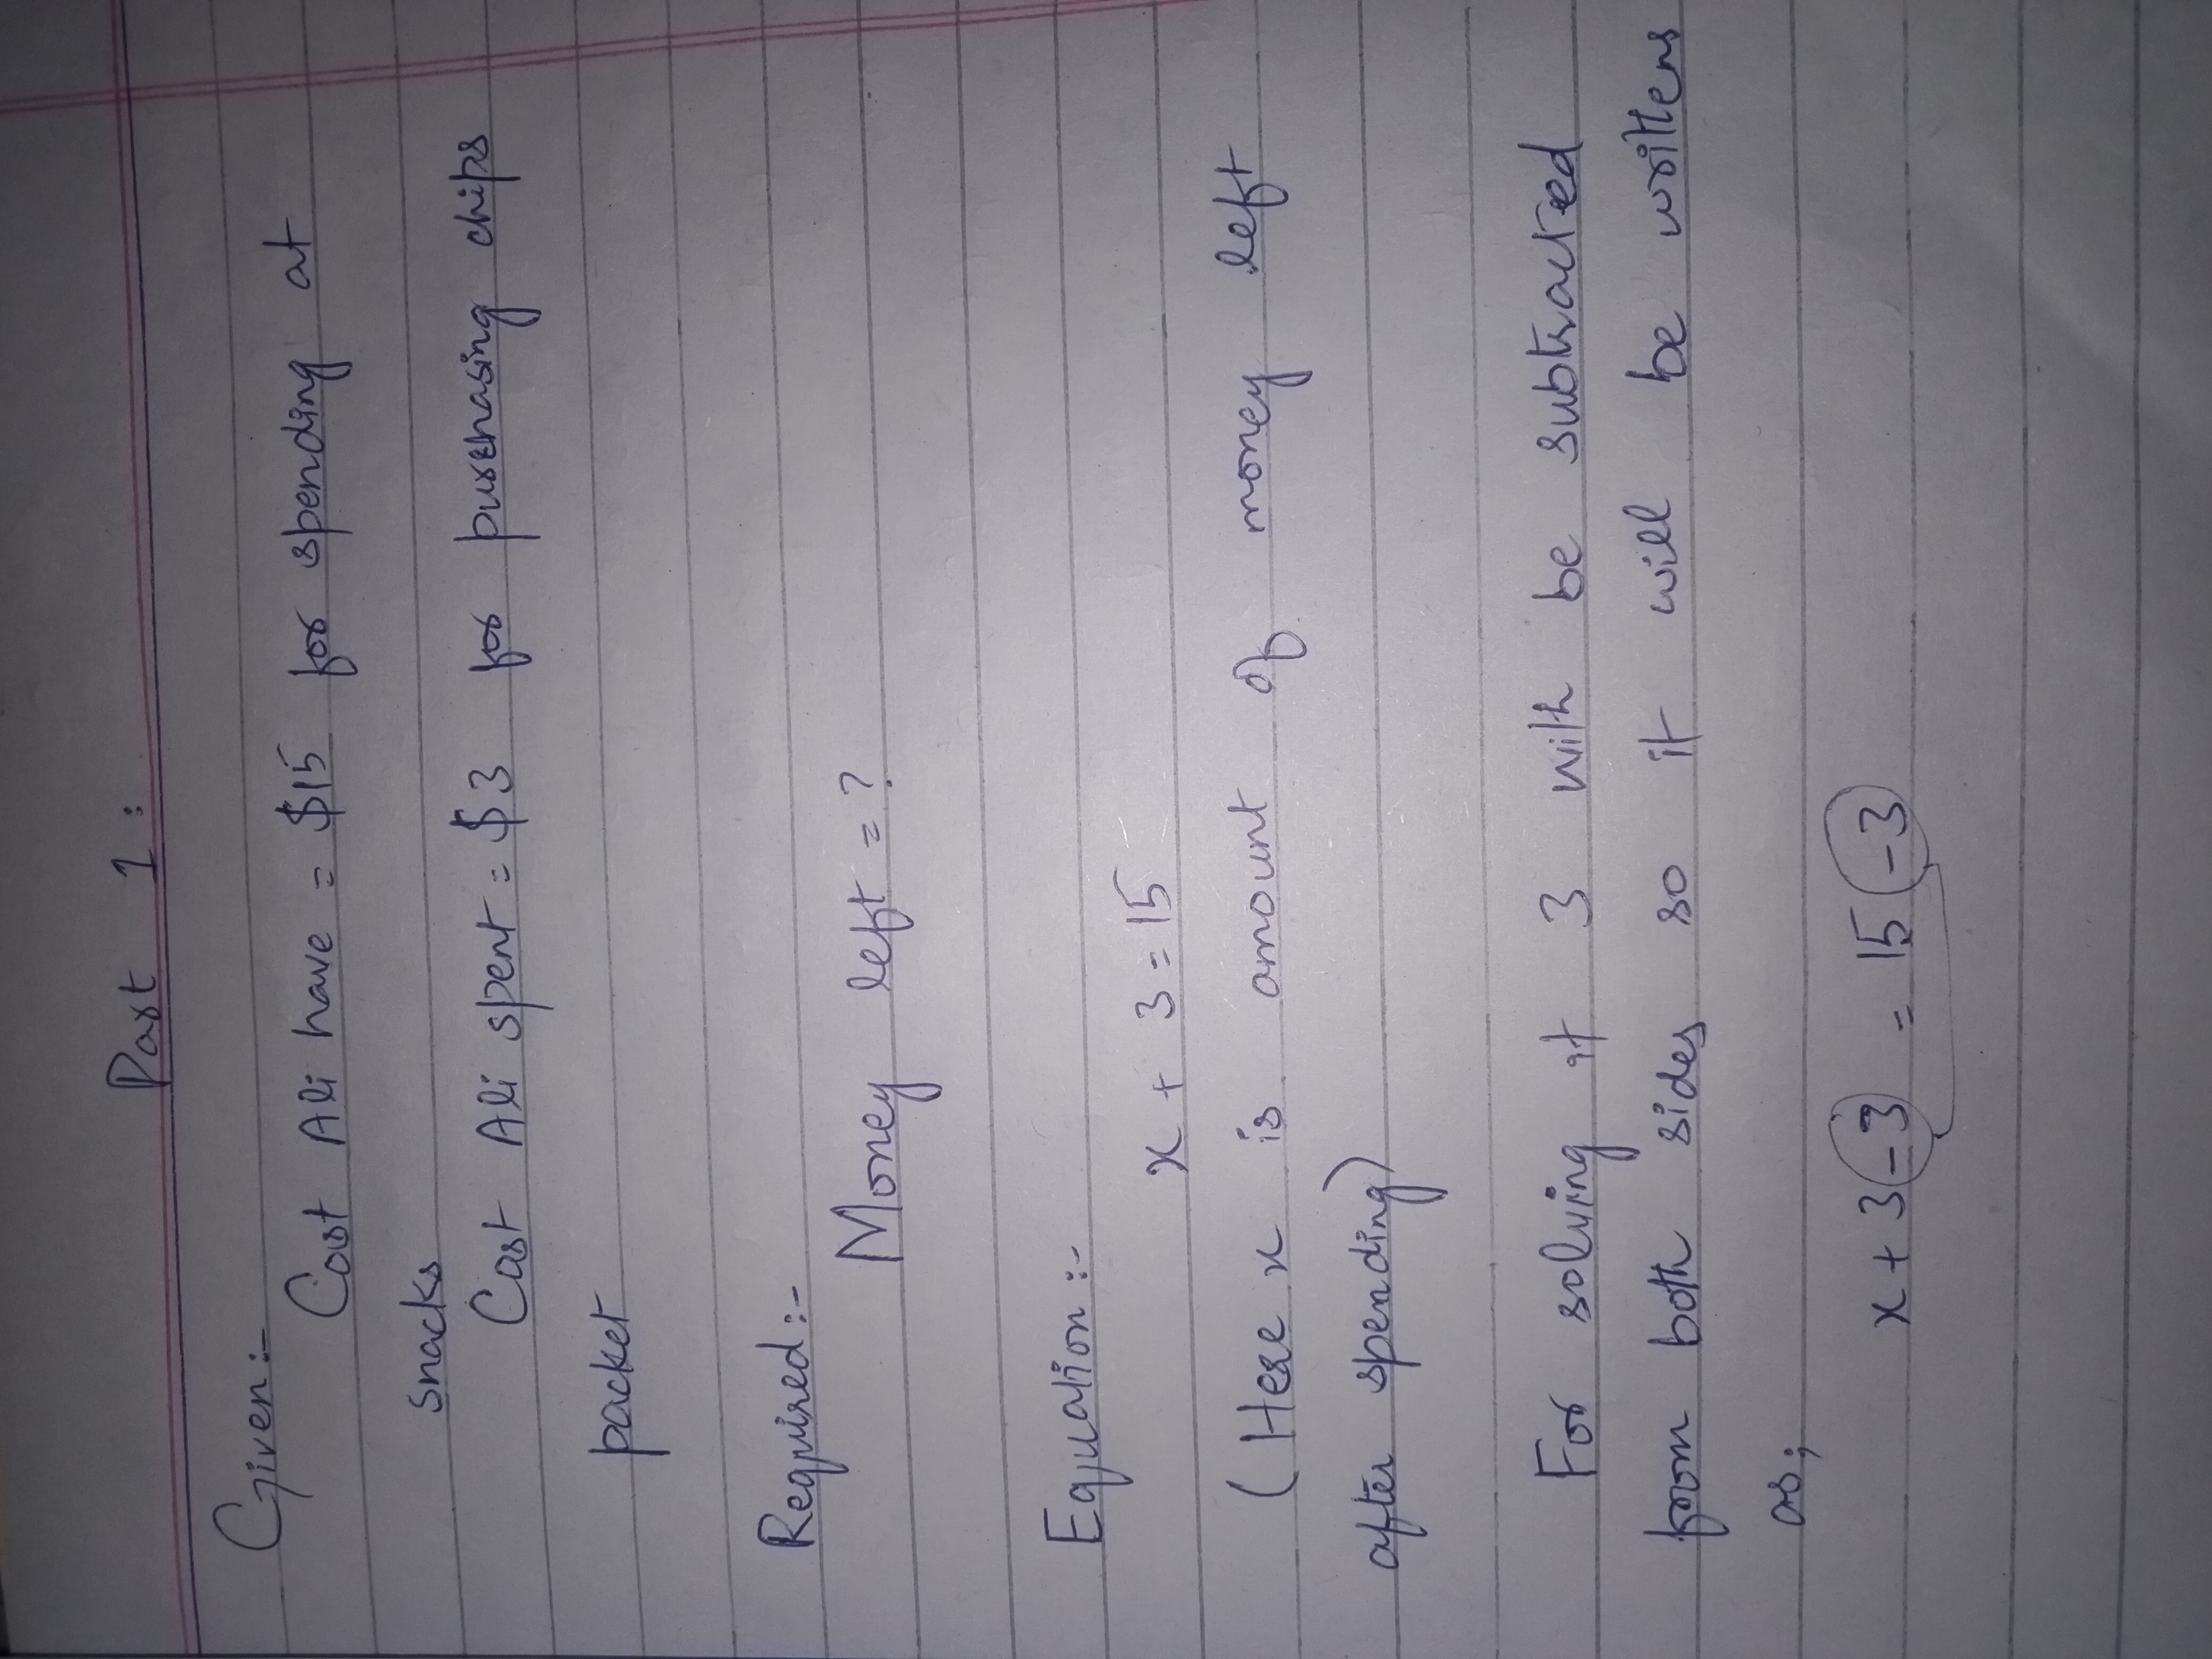 Part 1:
Given:-
Cost Ali have = $15 for spending at
snacks
Cost Ali spent = $3 for purchasing chips
packet
Required:-
Money left = ?
Equation:-
x + 3 = 15
(Here x is amount of money left
after spending)
For solving it 3 with be subtracted
from both sides so it will be written
as;
x + 3 - 3 = 15 - 3